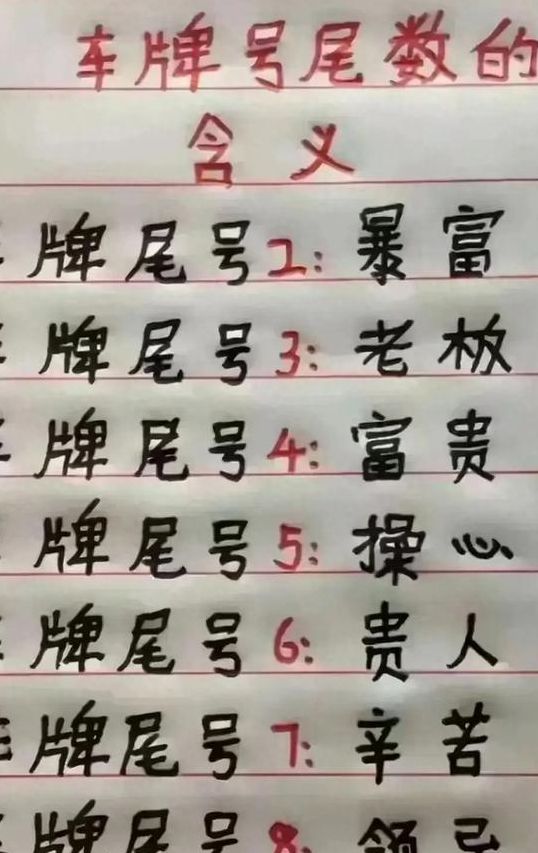 车牌号尾数的
含义
车牌尾号2:暴富
车牌尾号3:老板
车牌尾号4:富贵
车牌尾号5:操心
车牌尾号6:贵人
车牌尾号7:辛苦
车牌尾号8:领导